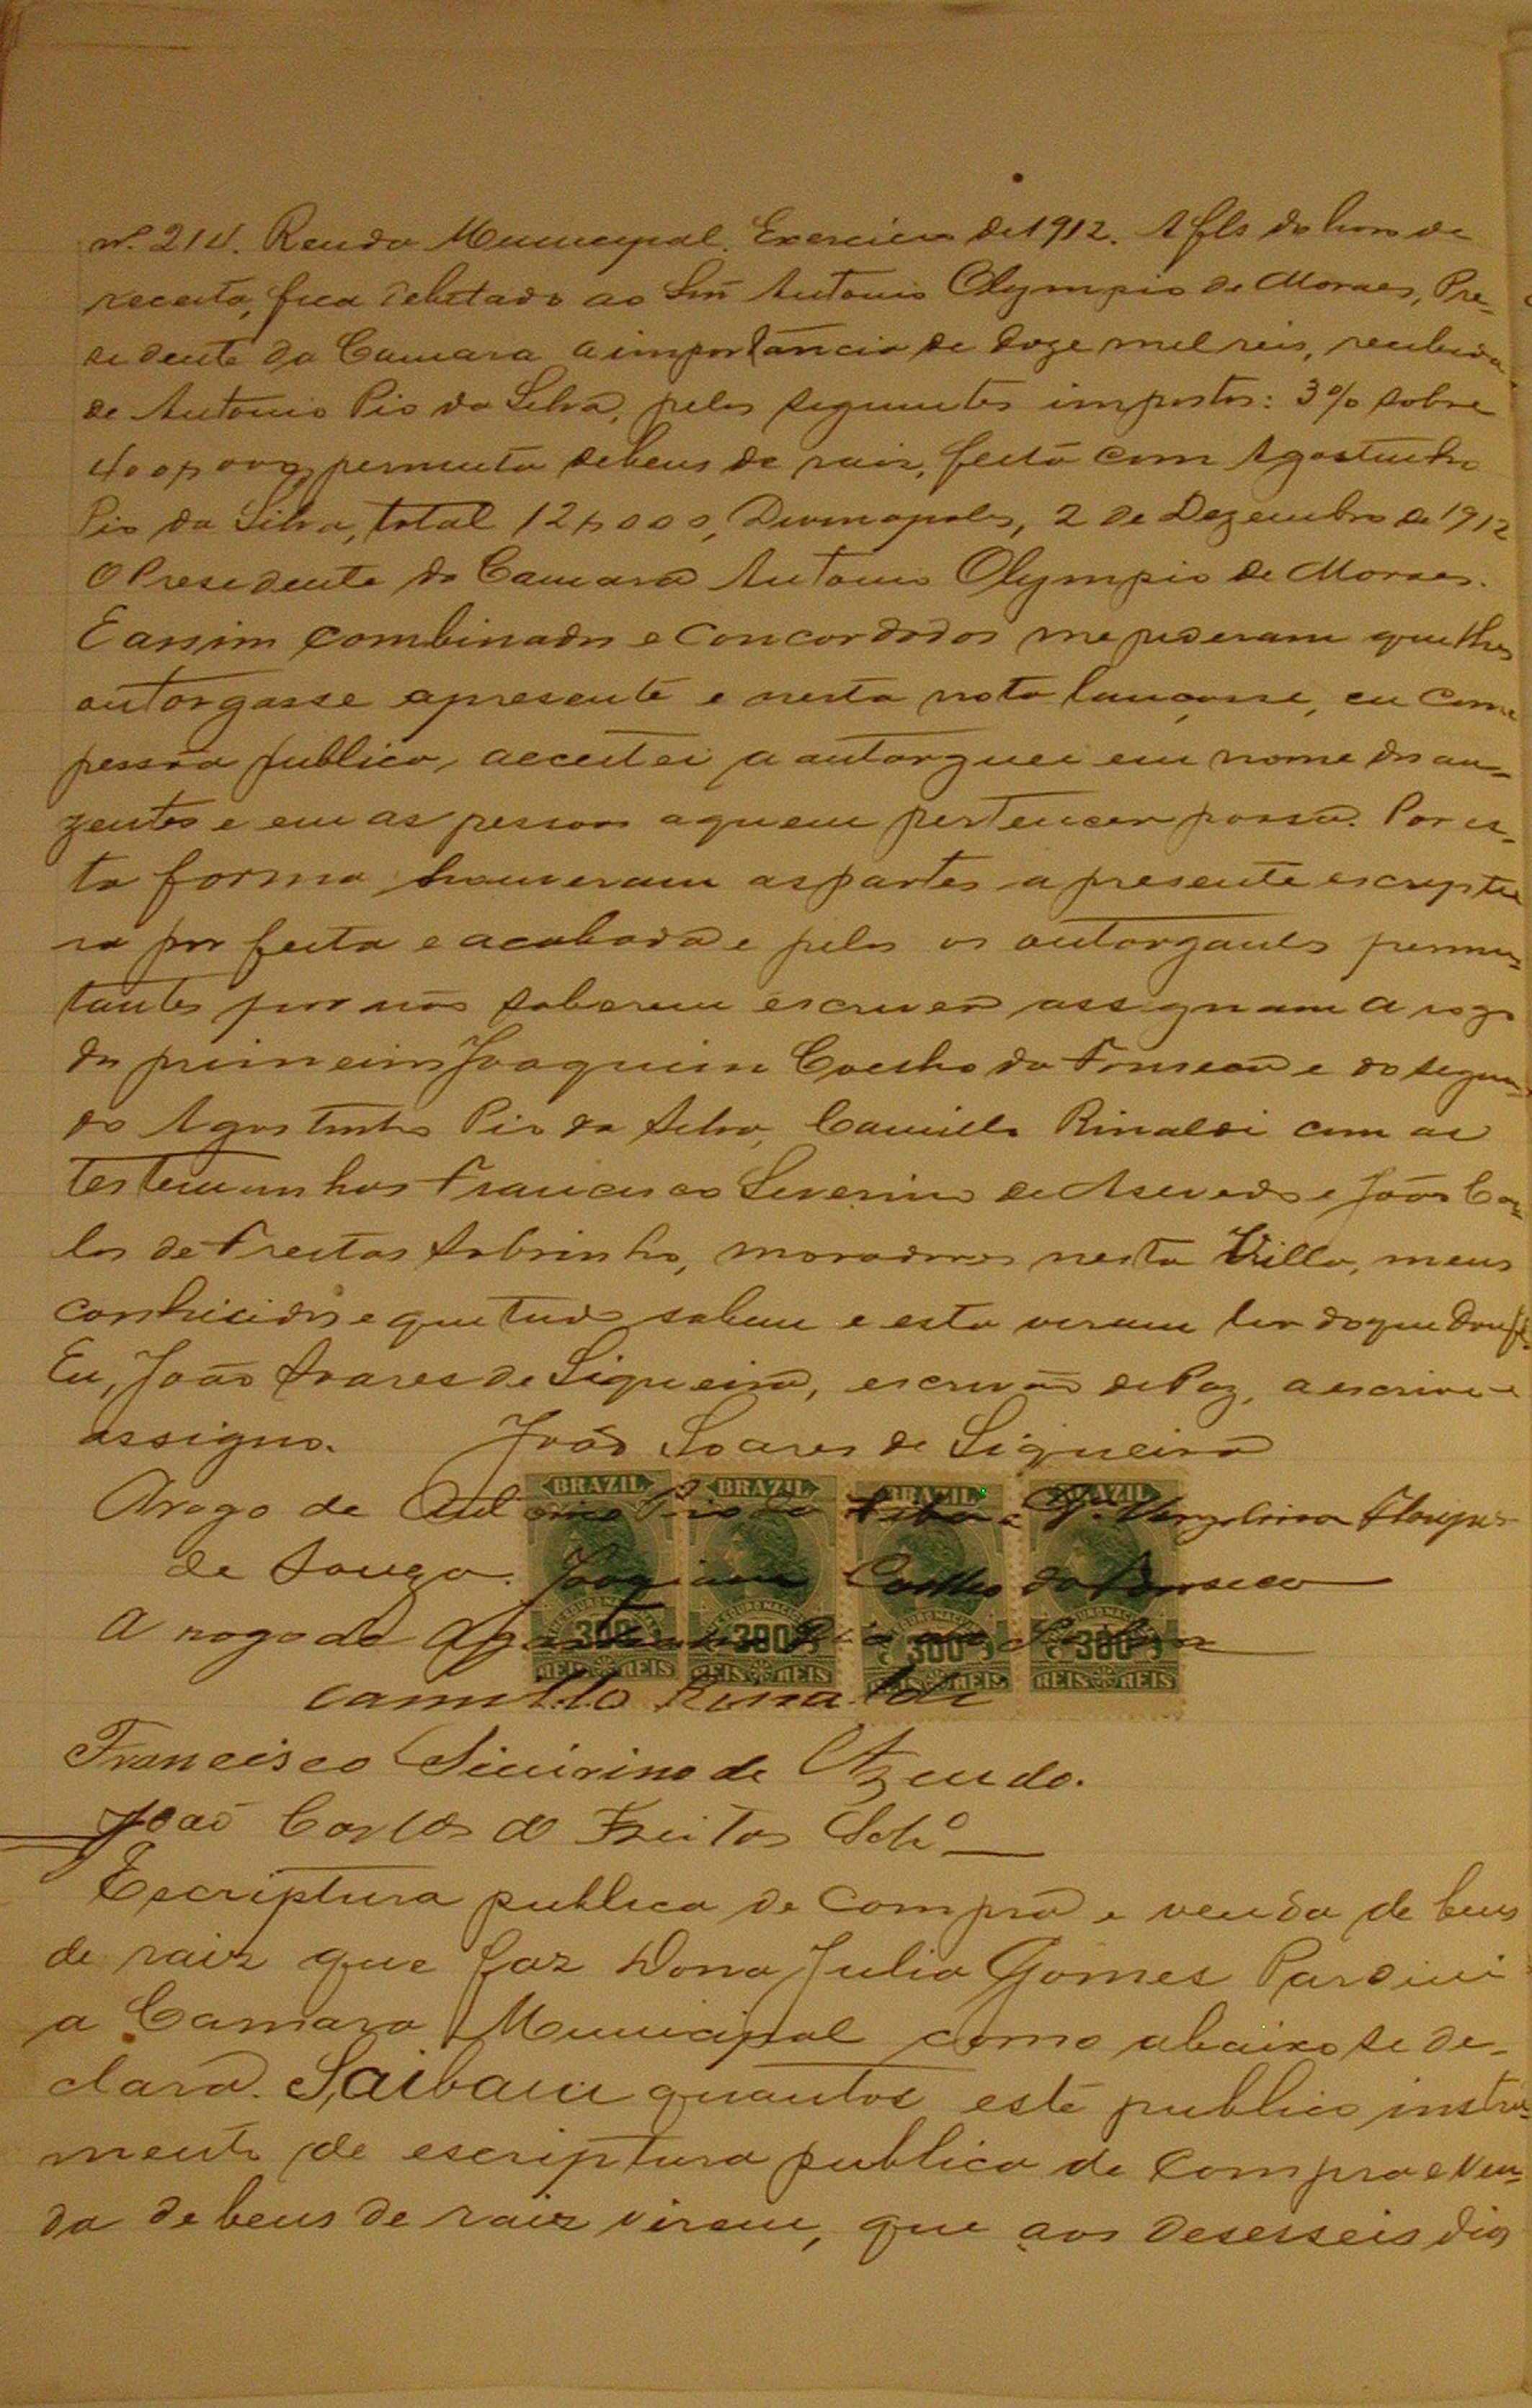 nº 214. Renda Municipal. Exercicio de 1912. A fls do livro de
receita, fica debitado ao Snr Antonio Olympio de Moraes, Pre-
sidente da Camara a importancia de doze mil reis, recebida
de Antonio Pio da Silva, pelos seguintes impostos: 3% sobre
400$000, permuta de bens de raiz, feita com Agostinho
Pio da Silva, total 12$000, Divinopolis, 2 de Dezembro de 1912
O Presidente da Camara Antonio Olympio de Moraes.
E assim combinados e concordados me pideram que lhes
outorgasse a presente e nesta nota lançasse, eu como
pessoa publica, acceitei a outorguei em nome dos au-
zentes e em as pessoas a quem pertencer possa. Por es-
ta forma houveram as partes a presente escriptu
ra por feita e acabada e pelos os outorgantes permu-
tantes por não saberem escrever assignam a rogo
do primeiro Joaquim Coelho da Fonseca e do segun-
do Agostinho Pio da Silva, Camillo Rinaldi com as
testemunhas Francisco Severino de Asevedo e João Car-
los de Freitas Sobrinho, moradores nesta Villa, meus
conhicidos e que tudo sabem e esta viram ler do que dou fé.
Eu, João Soares de Siqueira, escrivão de Paz, a escrivi e
assigno. João Soares de Siqueira
Arogo de Antonio Pio da Silva e Da. Vergolina
de Souza. Joaquim Coelho da Fonseca
A rogo de Agostinho Pio da Silva
Camillo Rinaldi
BRAZIL BRAZIL BRAZIL BRAZIL
300 300 300 300
REIS REIS REIS REIS REIS REIS REIS REIS
Francisco Siviirino de Azeudo.
João Carlos de Freitas Sobº
Escriptura publica de compra e venda de bens
de raiz que faz Dona Julia Gomes Pardini
a Camara Municipal como abaixo se de-
clara. Saibam quantos este publico instru-
mento de escriptura publica de compra e ven-
da de bens de raiz virem, que aos desesseis dias